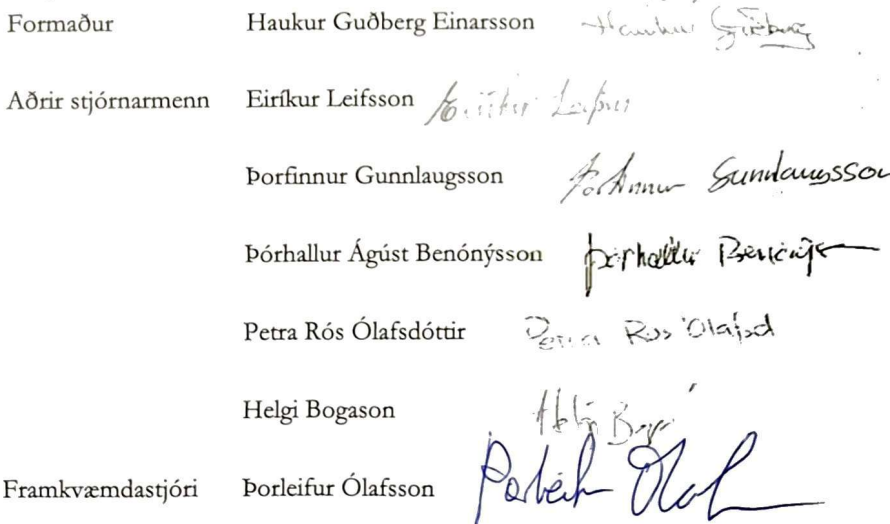 Formaður Haukur Guðberg Einarsson Haukur Guðberg
Aðrir stjórnarmenn Eiríkur Leifsson Eiríkur Leifsson
Þorfinnur Gunnlaugsson Þorfinnur Gunnlaugsson
Þórhallur Ágúst Benónýsson Þórhallur Benónýsson
Petra Rós Ólafsdóttir Petra Rós Ólafsd
Helgi Bogason Helgi Bogas
Framkvæmdastjóri Þorleifur Ólafsson Þorleifur Ólafs